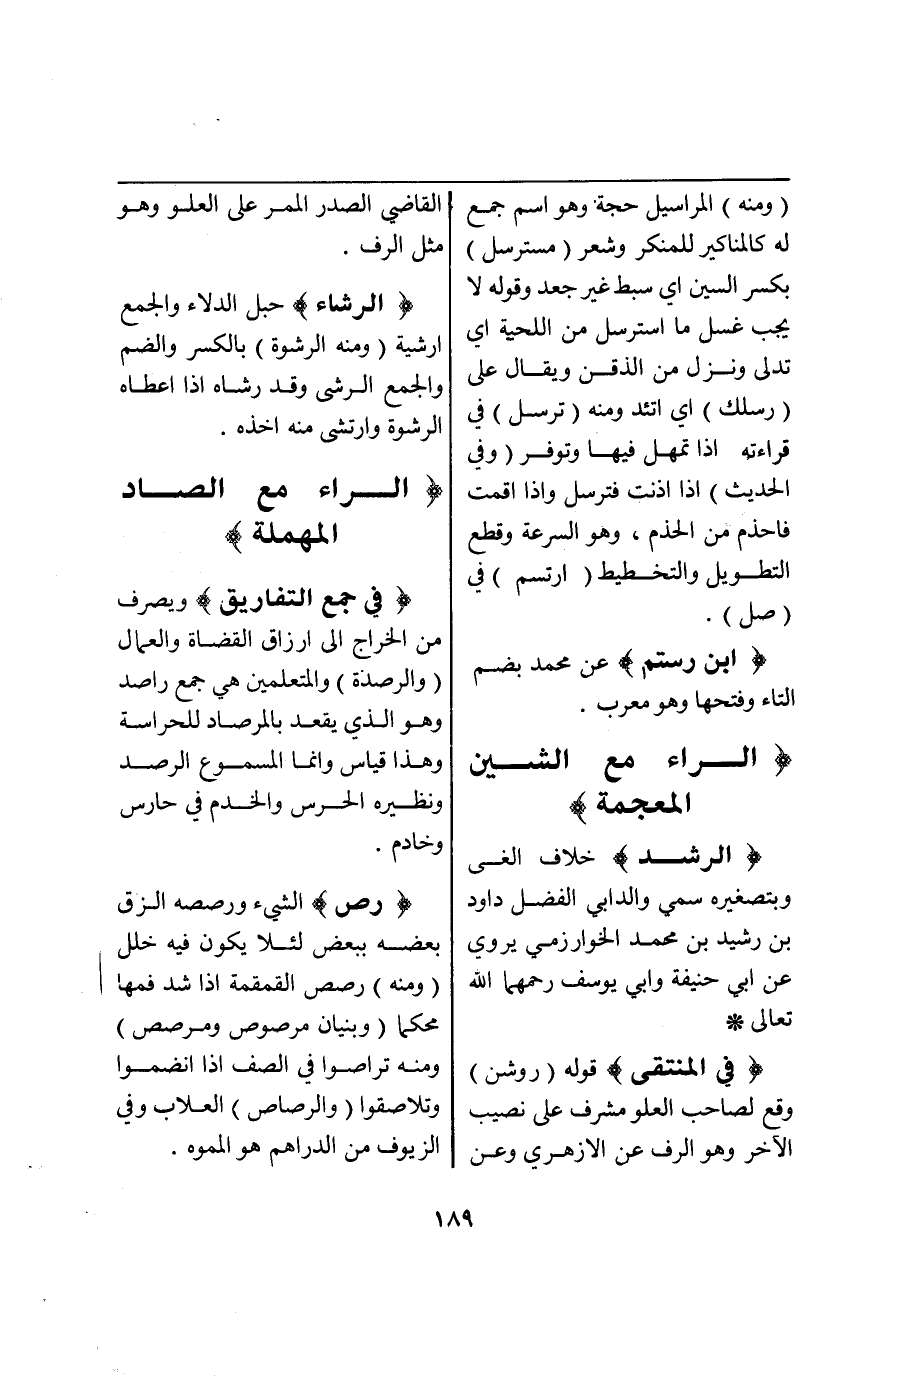 ( ومنه ) المراسيل حجة وهو اسم جمع
له كالمناكير للمنكر وشعر ( مسترسل )
بكسر السين اي سبط غير جعد وقوله لا
يجب غسل ما استرسل من اللحية اي
تدلى ونـزل من الذقـن ويقـال على
( رسلك ) اي اتئد ومنه ( ترسل ) في
قراءته اذا تمهـل فيهـا وتوفـر ( وفي
الحديث ) اذا اذنت فترسل واذا اقمت
فاحذم من الحذم ، وهو السرعة وقطع
التطـويل والتخـطيط ( ارتسم ) في
( صل ) .
﴿ ابن رستم ﴾ عن محمد بضـم
التاء وفتحها وهو معرب .
﴿ الـــراء مع الشـــين
المعجمة ﴾
﴿ الرشـــد ﴾ خلاف الغـى
وبتصغيره سمي والدابي الفضـل داود
بن رشيد بن محمـد الخوارزمـي يروي
عن ابي حنيفة وابي يوسف رحمهما الله
تعالى *
﴿ في المنتقى ﴾ قوله ( روشن )
وقع لصاحب العلو مشرف على نصيب
الآخر وهو الرف عن الازهـري وعـن
القاضي الصدر الممـر على العلـو وهـو
مثل الرف .
﴿ الرشاء ﴾ حبل الدلاء والجمع
ارشية ( ومنه الرشوة ) بالكسر والضم
والجمع الـرشى وقـد رشـاه اذا اعطـاه
الرشوة وارتشى منه اخذه .
﴿ الـــراء مع الصـــاد
المهملة ﴾
﴿ في جمع التفاريق ﴾ ويصرف
من الخراج الى ارزاق القضـاة والعمال
( والرصدة ) والمتعلمين هي جمع راصد
وهـو الـذي يقعـد بالمرصاد للحراسـة
وهـذا قياس وانمـا المسمـوع الرصـد
ونظـيره الحـرس والخـدم في حارس
وخادم .
﴿ رص ﴾ الشيء ورصصه الـزق
بعضـه ببعض لئـلا يكون فيه خلل
( ومنه ) رصص القمقمة اذا شد فمها
محكما ( وبنيان مرصوص ومـرصص )
ومنـه تراصـوا في الصف اذا انضمـوا
وتلاصقوا ( والرصاص ) العـلاب وفي
الزيوف من الدراهم هو المموه .
١٨٩